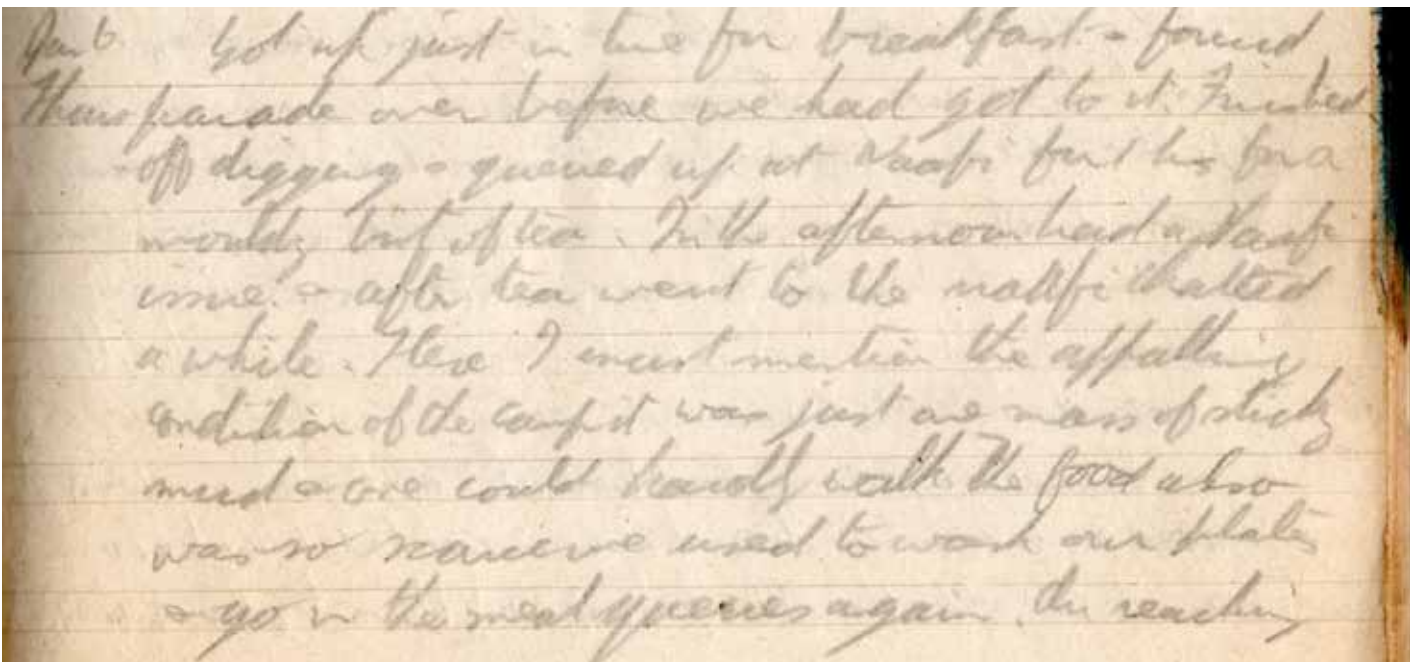 Jan 6 Got up just in time for breakfast & found
Thurs parade over before we had got to it. Finished
off digging & queued up at Naafi for 1 hr for a
mouldy bit of tea. In the afternoon had a Naafi
issue & after tea went to the naffi chatted
a while. Here I must mention the appalling
condition of the camp it was just one mass of sticky
mud & one could hardly walk. The food also
was so scarce we used to wash our plates
& go in the meal queues again. On reaching